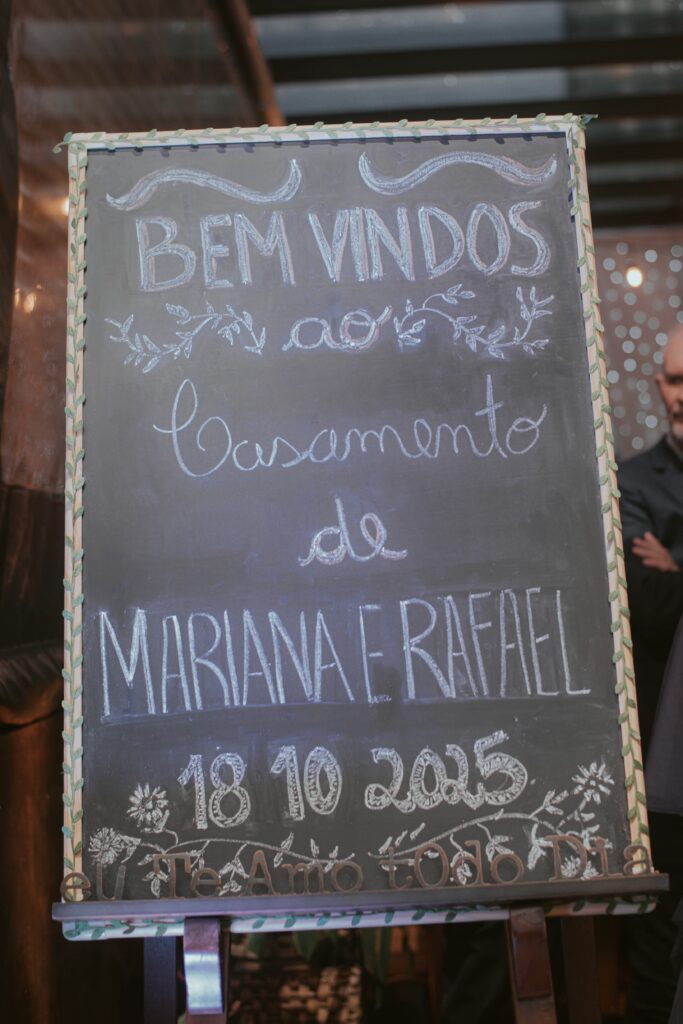 BEM VINDOS
ao
Casamento
de
MARIANA E RAFAEL
18 10 2025
eu Te Amo tOdo Dia